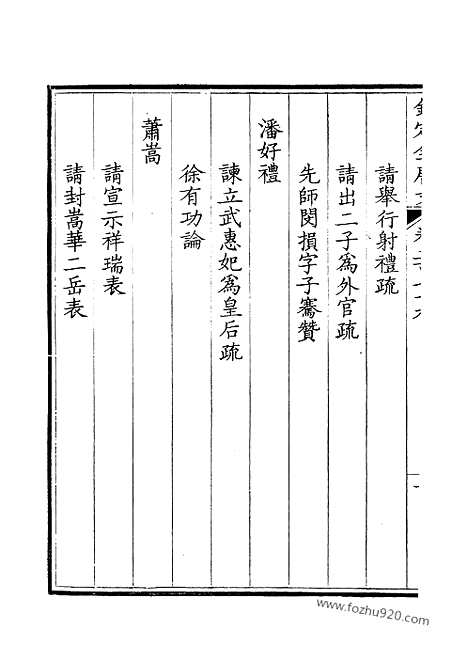 請舉行射禮疏
請出二子為外官疏
先師閔損字子騫贊
潘好禮
諫立武惠妃為皇后疏
徐有功論
蕭嵩
請宣示祥瑞表
請封嵩華二岳表
www.fozhu920.com